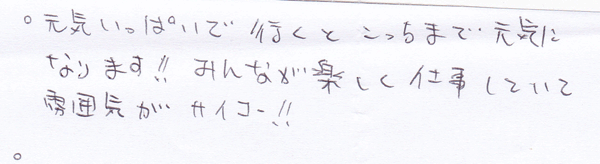 。元気いっぱいで 行くと こっちまで 元気に
なります!! みんなが楽しく仕事していて
雰囲気が サイコー!!
。